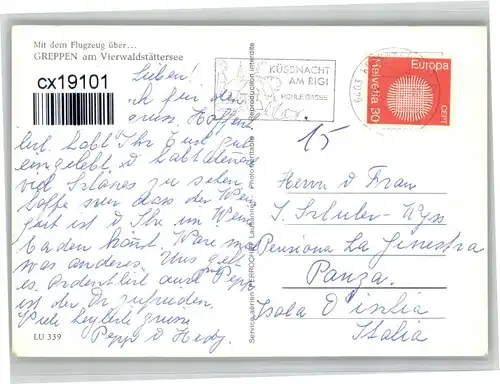 Mit dem Flugzeug über...
GREPPEN am Vierwaldstättersee
cx19101
Lieben!
für den
gruss. Hoffent
Habt Ihr Euch gut
eingelebt & habt
viel Schönes zu sehen
Hoffe nur dass der Wein
gut ist & Ihr im Wein
baden könnt. Wäre mal
was anderes. Uns geht
es ordentlich auch Pepp
ist der Dr zufrieden.
Viele herzliche Grüsse
Pepp & Hedy.
LU 339
Reproduction interdite
KÜSSNACHT
AM RIGI
HOHLE GASSE
6403
Europa
Helvetia 30
CEPT
15
Herrn & Frau
J. Schuler-Wyss
Pensiona La Ginestra
Panza.
Isola D'ischia
Italia